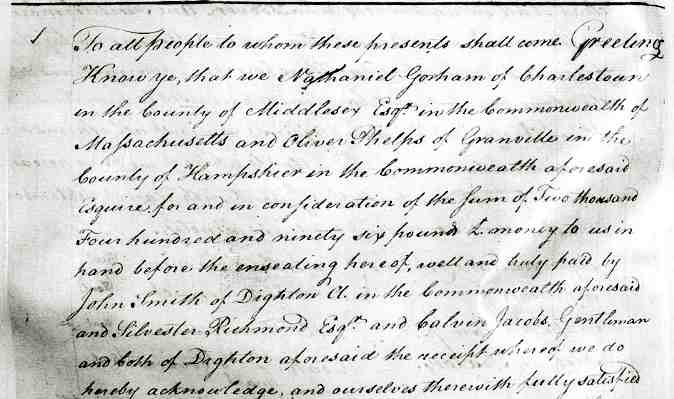 1 To all people to whom these presents shall come Greeting
Know ye, that we Nathaniel Gorham of Charlestown
in the County of Middlesex Esqr. in the Commonwealth of
Massachusetts and Oliver Phelps of Granville in the
County of Hampshier in the Commonwealth aforesaid
Esquire for and in consideration of the Sum of Two thousand
Four hundred and ninety six pound L money to us in
hand before the ensealing hereof, well and truly paid by
John Smith of Dighton Ct. in the Commonwealth aforesaid
and Silvester Richmond Esqr. and Calvin Jacobs Gentleman
and both of Dighton aforesaid the receipt whereof we do
hereby acknowledge, and ourselves therewith fully satisfied